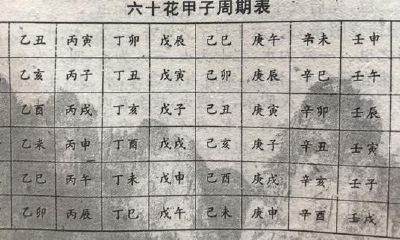 六十花甲子周期表
乙丑 丙寅 丁卯 戊辰 己巳 庚午 辛未 壬申
乙亥 丙子 丁丑 戊寅 己卯 庚辰 辛巳 壬午
乙酉 丙戌 丁亥 戊子 己丑 庚寅 辛卯 壬辰
乙未 丙申 丁酉 戊戌 己亥 庚子 辛丑 壬寅
乙巳 丙午 丁未 戊申 己酉 庚戌 辛亥 壬子
乙卯 丙辰 丁巳 戊午 己未 庚申 辛酉 壬戌